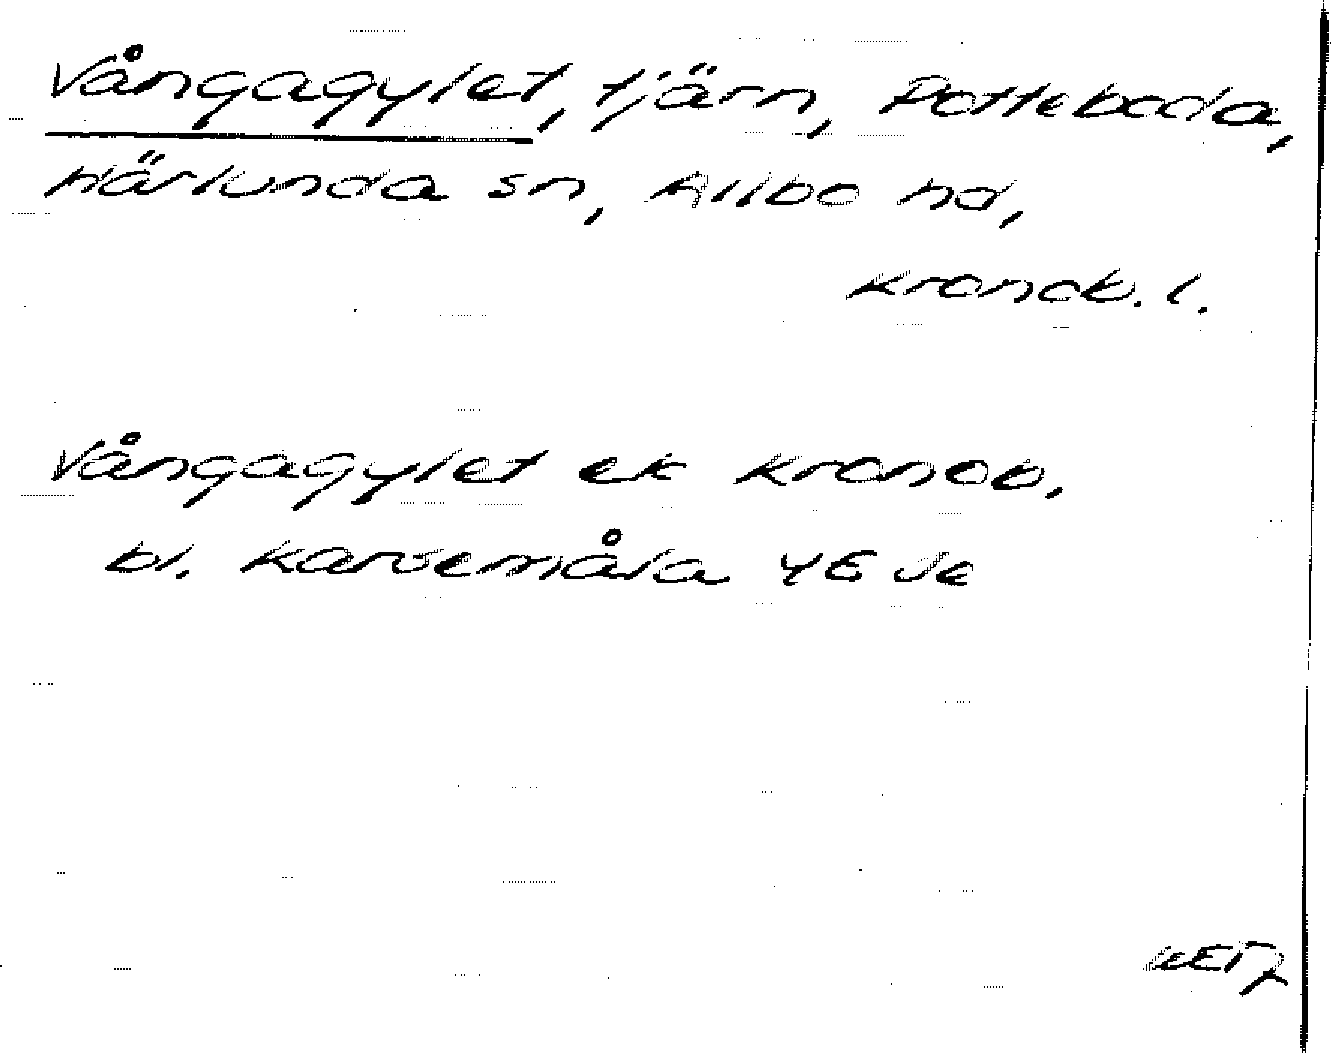 Vångagylet, tjärn, Potteboda,
Härlunda sn, Allbo hd,
Kronob. l.
Vångagylet ek Kronob.
bl. Karsemåla 4E